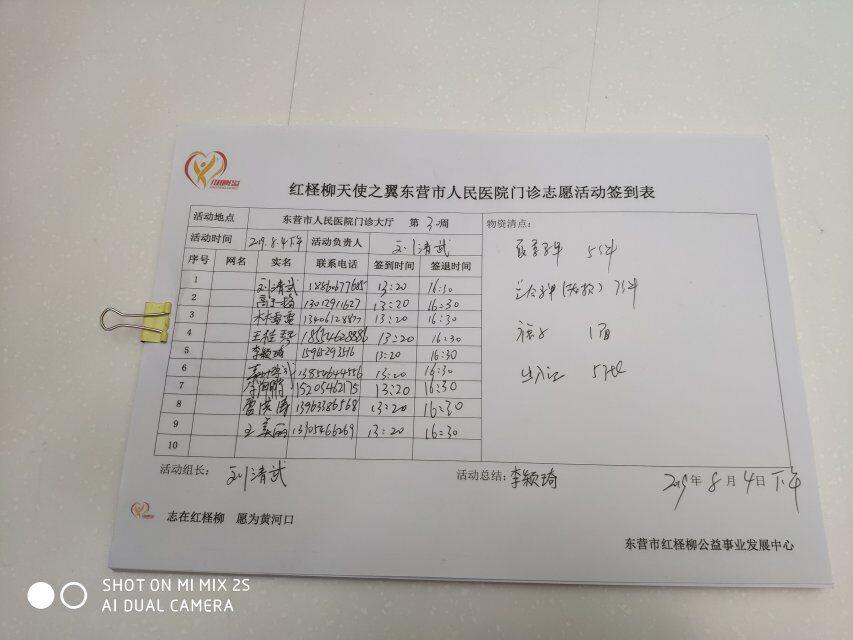 红柽柳天使之翼东营市人民医院门诊志愿活动签到表
活动地点 东营市人民医院门诊大厅 第3周 物资清点:
活动时间 2019.8.4下午 活动负责人 刘清武
序号 网名 实名 联系电话 签到时间 签退时间
1 刘清武 18860677685 13:20 16:30
2 13012911627 13:20 16:30
3 13406128877 13:20 16:30
4 王桂琴 18554628886 13:20 16:30
5 李颖琦 15965293516 13:20 16:30
6 13854644556 13:20 16:30
7 15205462175 13:20 16:30
8 13963386568 13:20 16:30
9 王美丽 13305466269 13:20 16:30
10
活动组长: 刘清武 活动总结: 李颖琦 2019年8月4日下午
志在红柽柳 愿为黄河口
东营市红柽柳公益事业发展中心
SHOT ON MI MIX 2S
AI DUAL CAMERA